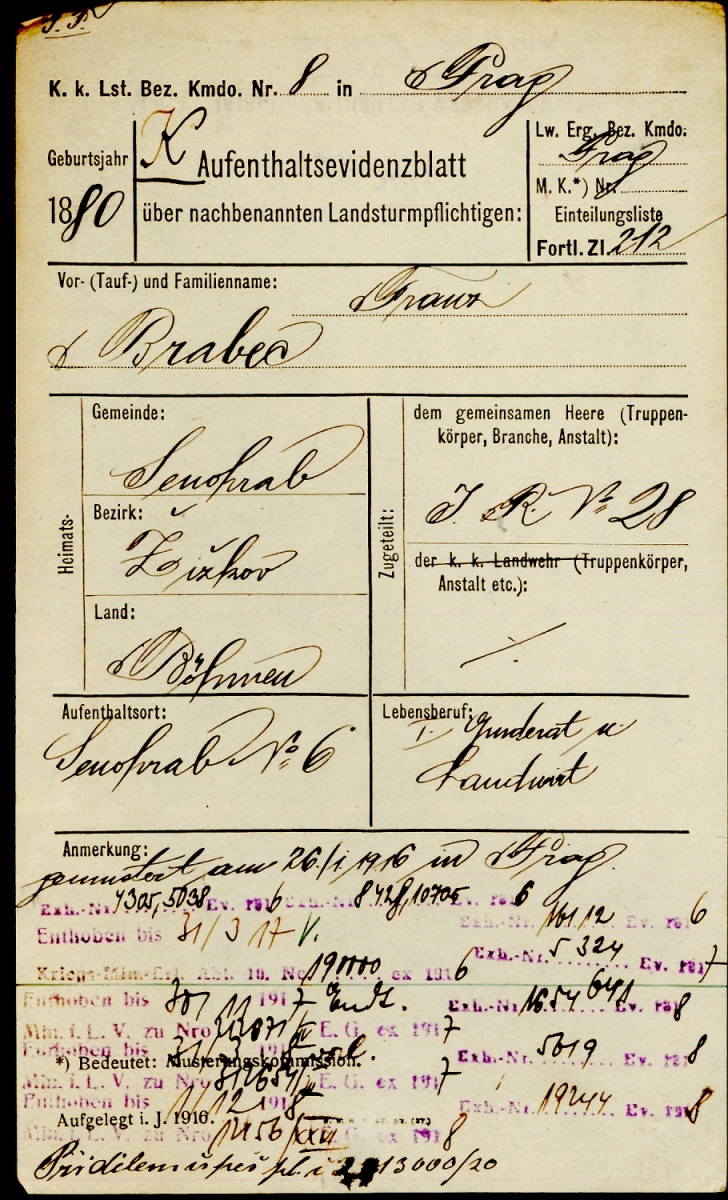 K. k. Lst. Bez. Kmdo. Nr. 8 in Prag
Geburtsjahr
1880
K
Aufenthaltsevidenzblatt
über nachbenannten Landsturmpflichtigen:
Lw. Erg. Bez. Kmdo.
Prag
M. K.*) Nr.
Einteilungsliste
Fortl. Zl. 212
Vor- (Tauf-) und Familienname: Franz
Brabec
Heimats-
Gemeinde:
Senohrab
Bezirk:
Žižkov
Land:
Böhmen
Zugeteilt:
dem gemeinsamen Heere (Truppen-
körper, Branche, Anstalt):
I. R. No 28
der k. k. Landwehr (Truppenkörper,
Anstalt etc.):
Aufenthaltsort:
Senohrab No 6
Lebensberuf:
u.
Landwirt
Anmerkung:
gemustert am 26./I. 1916 in Prag.
Exh.-Nr. 7305, 5038 Ev. 6 8428, 10705 Ev. 6
Exh.-Nr. 16112 Ev. 6
Enthoben bis 31/3 17 V.
Exh.-Nr. 5324 Ev. 7
Kriegs-Min.-Erl. Abt. 10. No 191000 ex 1916
Enthoben bis 30/11 1917
Exh.-Nr. Ev. 8
Min. f. L. V. zu Nro E. G. ex 1917
Enthoben bis 31/
Exh.-Nr. 5019 Ev. 8
*) Bedeutet: Musterungskommission.
Min. f. L. V. zu Nro E. G. ex 1917
Enthoben bis 1/12 1918
Exh.-Nr. 19244 Ev. 8
Aufgelegt i. J. 1916.
Min. f. L. V. zu Nro XXVI E. G. ex 1918
13000/20